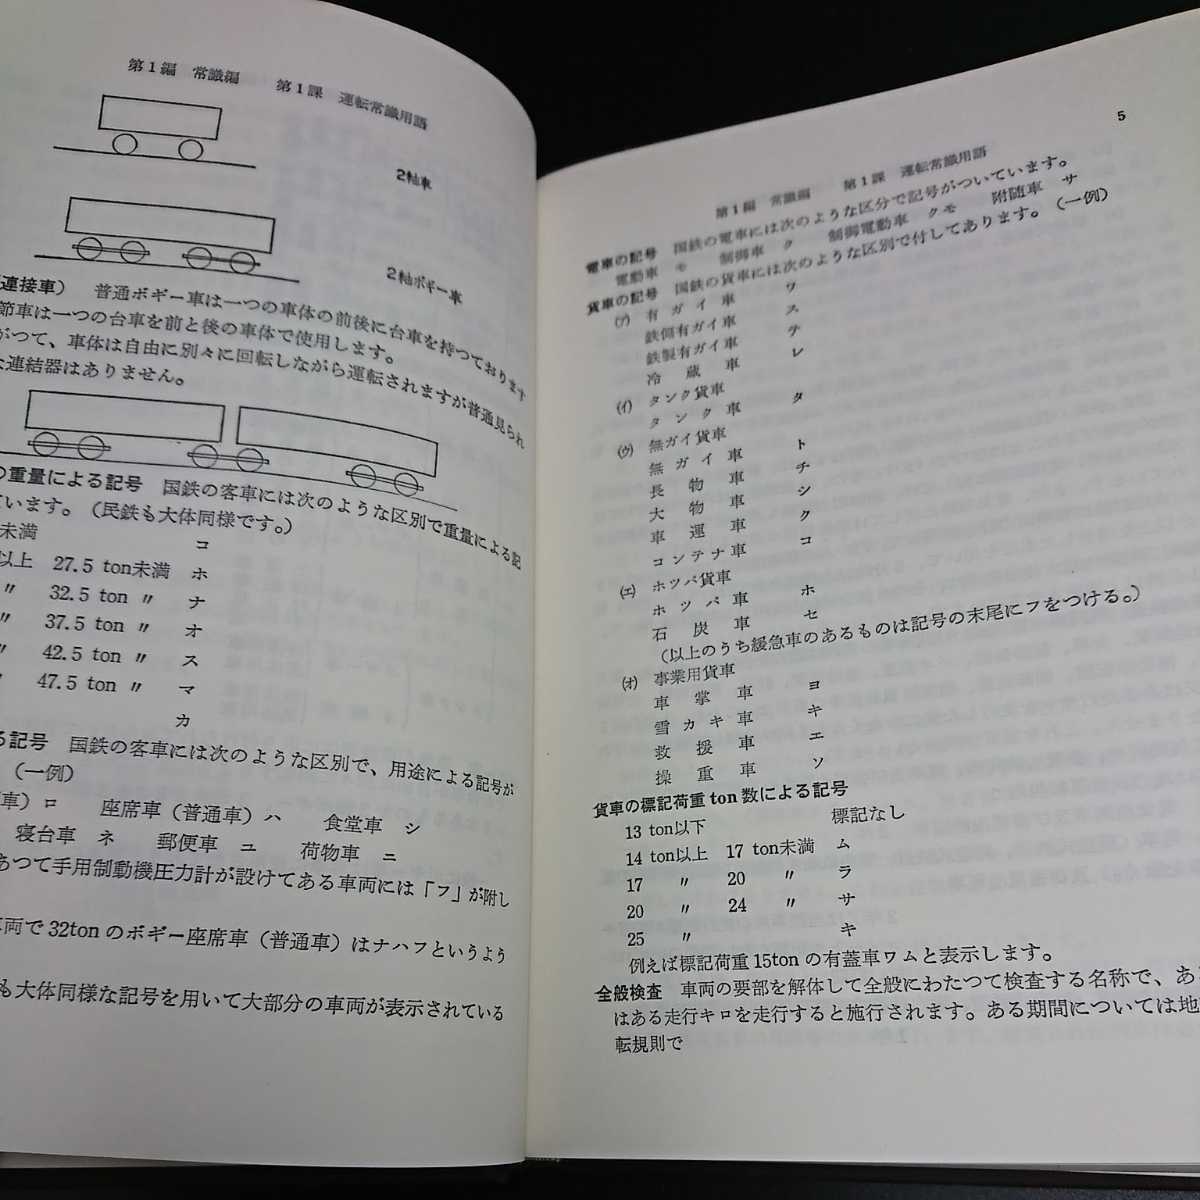 第1編 常識編 第1課 運転常識用語
2軸車
2軸ボギー車
連接車) 普通ボギー車は一つの車体の前後に台車を持つております
節車は一つの台車を前と後の車体で使用します。
がつて、車体は自由に別々に回転しながら運転されますが普通見られ
な連結器はありません。
の重量による記号 国鉄の客車には次のような区別で重量による記
ています。(民鉄も大体同様です。)
未満 コ
以上 27.5 ton未満 ホ
〃 32.5 ton 〃 ナ
〃 37.5 ton 〃 オ
〃 42.5 ton 〃 ス
〃 47.5 ton 〃 マ
カ
る記号 国鉄の客車には次のような区別で、用途による記号が
(一例)
車)ロ 座席車(普通車)ハ 食堂車 シ
寝台車 ネ 郵便車 ユ 荷物車 ニ
あつて手用制動機圧力計が設けてある車両には「フ」が附し
車両で32tonのボギー座席車(普通車)はナハフというよう
も大体同様な記号を用いて大部分の車両が表示されている
5
第1編 常識編 第1課 運転常識用語
電車の記号 国鉄の電車には次のような区分で記号がついています。
電動車 モ 制御車 ク 制御電動車 クモ 附随車 サ
貨車の記号 国鉄の貨車には次のような区別で付してあります。(一例)
(ア) 有ガイ車 ワ
鉄側有ガイ車 ス
鉄製有ガイ車 テ
冷蔵車 レ
(イ) タンク貨車
タンク車 タ
(ウ) 無ガイ貨車
無ガイ車 ト
長物車 チ
大物車 シ
車運車 ク
コンテナ車 コ
(エ) ホツパ貨車
ホツパ車 ホ
石炭車 セ
(以上のうち緩急車のあるものは記号の末尾にフをつける。)
(オ) 事業用貨車
車掌車 ヨ
雪カキ車 キ
救援車 エ
操重車 ソ
貨車の標記荷重ton数による記号
13 ton以下 標記なし
14 ton以上 17 ton未満 ム
17 〃 20 〃 ラ
20 〃 24 〃 サ
25 〃 キ
例えば標記荷重15tonの有蓋車ワムと表示します。
全般検査 車両の要部を解体して全般にわたつて検査する名称で、あ
はある走行キロを走行すると施行されます。ある期間については地
転規則で